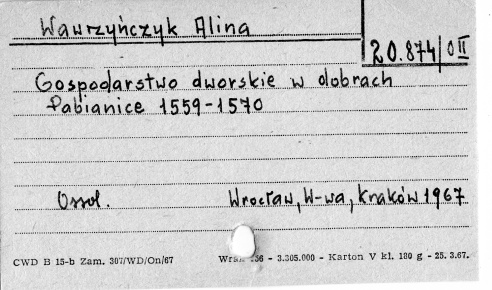 Wawrzyńczyk Alina
20.874/O II
Gospodarstwo dworskie w dobrach
Pabianice 1559-1570
Ossol. Wrocław, W-wa, Kraków 1967
CWD B 15-b Zam. 307/WD/On/67 - 3.305.000 - Karton V kl. 180 g - 25.3.67.